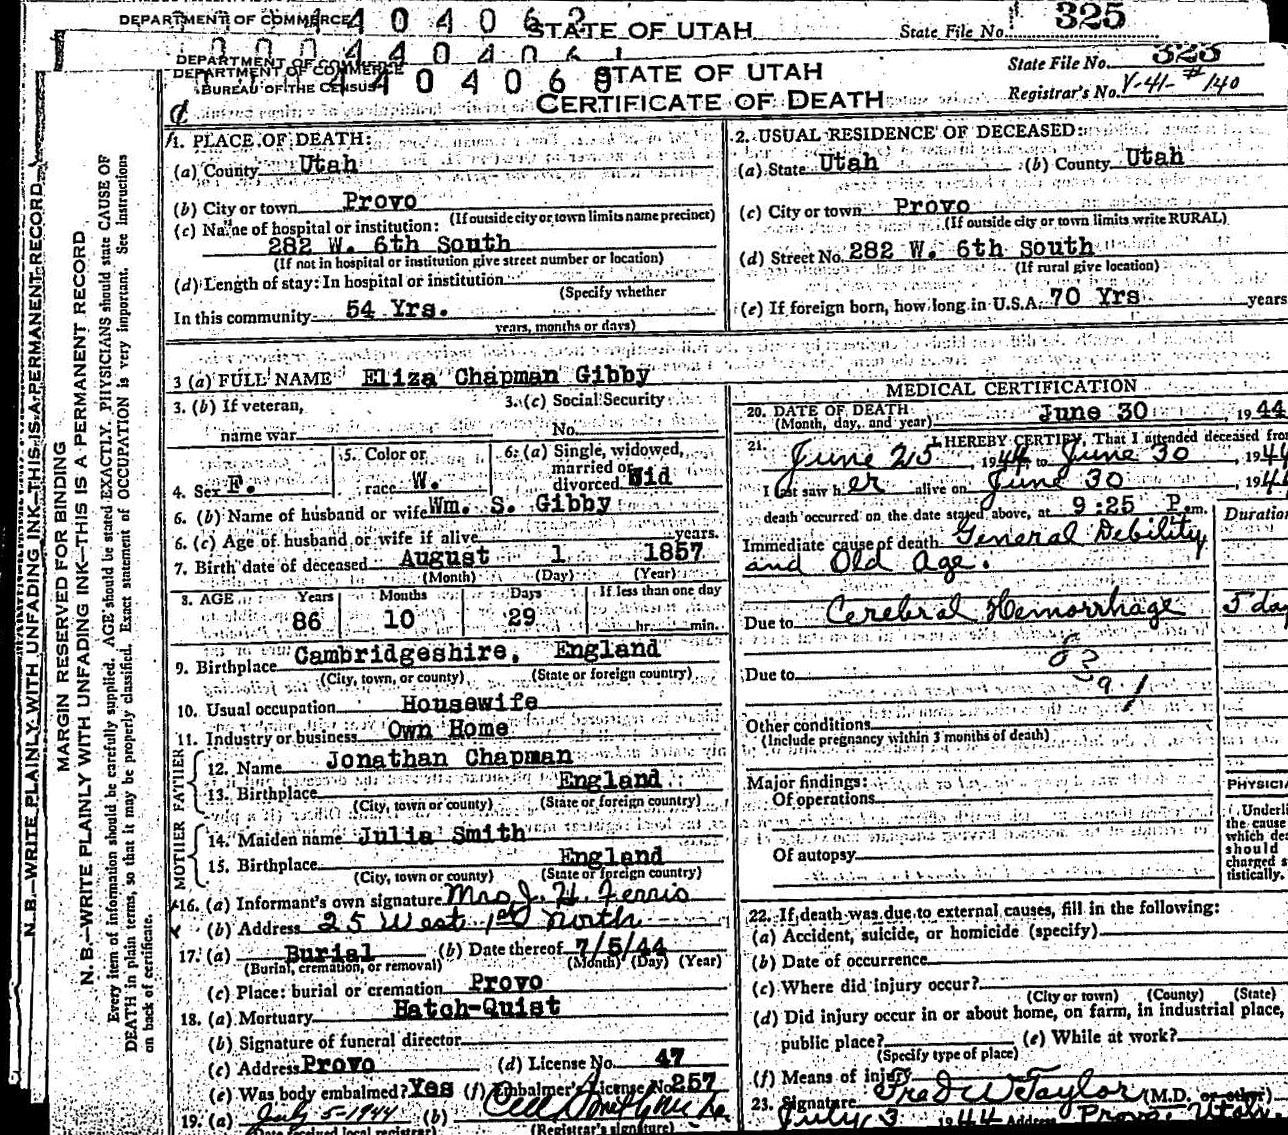 DEPARTMENT OF COMMERCE
STATE OF UTAH
State File No. 325
DEPARTMENT OF COMMERCE
State File No. 323
DEPARTMENT OF COMMERCE
BUREAU OF THE CENSUS
STATE OF UTAH
CERTIFICATE OF DEATH
Registrar's No. Y-41-#140
N. B.—WRITE PLAINLY WITH UNFADING INK—THIS IS A PERMANENT RECORD
MARGIN RESERVED FOR BINDING
N. B.—WRITE PLAINLY WITH UNFADING INK—THIS IS A PERMANENT RECORD
Every item of information should be carefully supplied. AGE should be stated EXACTLY. PHYSICIANS should state CAUSE OF
DEATH in plain terms, so that it may be properly classified. Exact statement of OCCUPATION is very important. See instructions
on back of certificate.
1. PLACE OF DEATH:
(a) County Utah
(b) City or town Provo
(If outside city or town limits name precinct)
(c) Name of hospital or institution:
282 W. 6th South
(If not in hospital or institution give street number or location)
(d) Length of stay: In hospital or institution
(Specify whether
In this community 54 Yrs.
years, months or days)
2. USUAL RESIDENCE OF DECEASED:
(a) State Utah (b) County Utah
(c) City or town Provo
(If outside city or town limits write RURAL)
(d) Street No. 282 W. 6th South
(If rural give location)
(e) If foreign born, how long in U.S.A. 70 Yrs years
3 (a) FULL NAME Eliza Chapman Gibby
3. (b) If veteran,
name war
3. (c) Social Security
No.
4. Sex F.
5. Color or
race W.
6. (a) Single, widowed,
married or
divorced Wid
6. (b) Name of husband or wife Wm. S. Gibby
6. (c) Age of husband or wife if alive years.
7. Birth date of deceased August 1 1857
(Month) (Day) (Year)
8. AGE Years Months Days If less than one day
86 10 29 hr. min.
9. Birthplace Cambridgeshire, England
(City, town, or county) (State or foreign country)
10. Usual occupation Housewife
11. Industry or business Own Home
FATHER
12. Name Jonathan Chapman
13. Birthplace England
(City, town or county) (State or foreign country)
MOTHER
14. Maiden name Julia Smith
15. Birthplace England
(City, town or county) (State or foreign country)
16. (a) Informant's own signature Mrs J. H. Ferris
(b) Address 25 West 1st North
17. (a) Burial (b) Date thereof 7/5/44
(Burial, cremation, or removal) (Month) (Day) (Year)
(c) Place: burial or cremation Provo
18. (a) Mortuary Hatch-Quist
(b) Signature of funeral director
(c) Address Provo (d) License No. 47
(e) Was body embalmed? Yes (f) Embalmer's License No 257
19. (a) July 5-1944 (b)
(Date received local registrar) (Registrar's signature)
MEDICAL CERTIFICATION
20. DATE OF DEATH June 30 1944
(Month, day, and year)
21. I HEREBY CERTIFY, That I attended deceased from
June 25, 1944 to June 30, 1944
I last saw her alive on June 30, 194
death occurred on the date stated above, at 9:25 P. m.
Duration
Immediate cause of death General Debility
and Old Age.
Due to Cerebral Hemorrhage 5 day
Due to
Other conditions
(Include pregnancy within 3 months of death)
Major findings:
Of operations
Of autopsy
PHYSICIA
Underli
the cause
which dea
should
charged s
tistically.
22. If death was due to external causes, fill in the following:
(a) Accident, suicide, or homicide (specify)
(b) Date of occurrence
(c) Where did injury occur?
(City or town) (County) (State)
(d) Did injury occur in or about home, on farm, in industrial place,
public place? (e) While at work?
(Specify type of place)
(f) Means of injury
23. Signature Fred W Taylor (M.D. or other)
July 3 1944 Address Provo, Utah